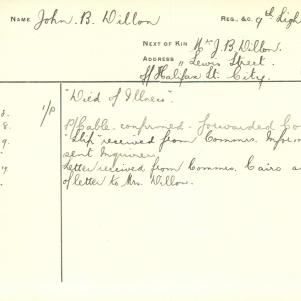 NAME John. B. Dillon REG., &C. 9th Ligh
NEXT OF KIN Mrs J. B. Dillon.
ADDRESS " Lewis Street.
off Halifax St. City.
1/P "Died of Illness".
8. P/Cable confirmed. Forwarded Co
9. "Slip" received from Commrs. Inform
sent Inquirer.
Letter received from Commrs. Cairo a
of letter to Mrs. Dillon.